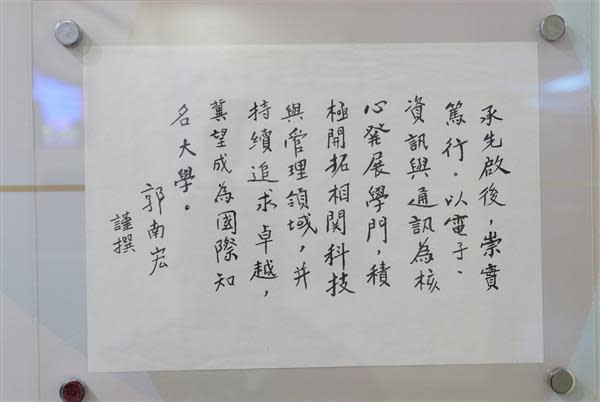 承先啟後，崇實
篤行。以電子、
資訊與通訊為核
心發展學門，積
極開拓相關科技
與管理領域，并
持續追求卓越，
冀望成為國際知
名大學。
郭南宏
謹撰